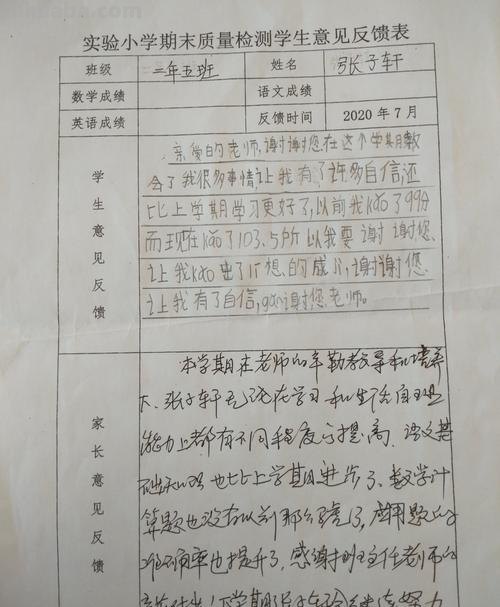 实验小学期末质量检测学生意见反馈表
班级 二年五班 姓名 张子轩
数学成绩 语文成绩
英语成绩 反馈时间 2020年7月
学生意见反馈
亲爱的老师,谢谢您在这个学期教
会了我很多事情,让我有了许多自信,还
比上学期学习更好了,以前我kǎo了99分
而现在kǎo了103.5所以我要谢谢您
让我kǎo出了lǐ想的成jì,谢谢您
让我有了自信,gǎn谢您老师。
家长意见反馈
本学期在老师的辛勤教导和培养
下、张子轩无论在学习和生活自理
能力上都有不同程度的提高,语文基
础知识也比上学期进步了、数学计
算题也没有以前那么马虎了,应用题的
准确率也提升了,感谢班主任老师的